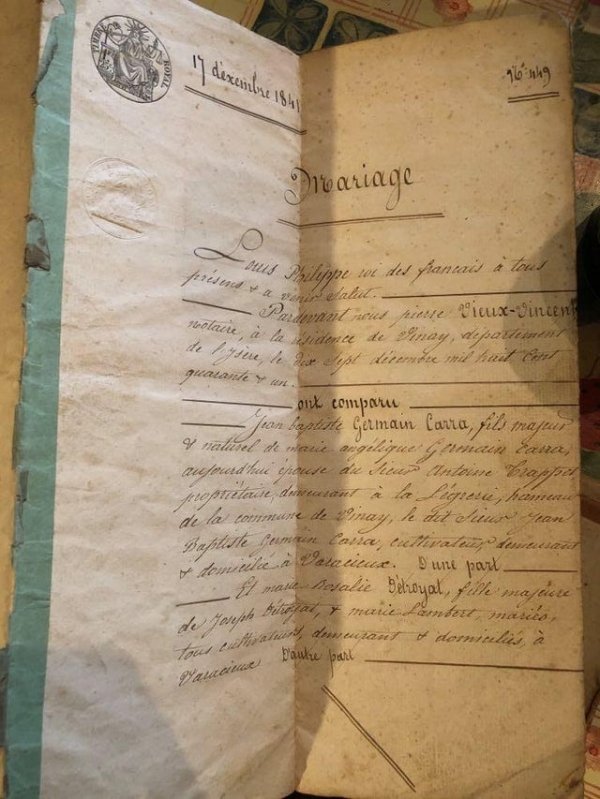 TIMBRE ROYAL
17 décembre 1841
No. 449
Mariage
Louis Philippe roi des français à tous
présens & a venir Salut.
Pardevant nous pierre Vieux-Vincent
notaire, à la résidence de Vinay, département
de l'Isère, le dix Sept décembre mil huit Cent
quarante & un.
ont comparu
Jean baptiste Germain Carra, fils majeur
& naturel de marie angélique Germain Carra,
aujourd'hui épouse du Sieur Antoine
propriétaire, demeurant à la Légrerie, hameau
de la commune de Vinay, le dit Sieur Jean
Baptiste Germain Carra, cultivateur, demeurant
& domicilié à Varacieux. D'une part
Et marie Rosalie Détroyat, fille majeure
de Joseph Détroyat, & marie Lambert, mariés,
tous cultivateurs, demeurant & domiciliés, à
Varacieux D'autre part